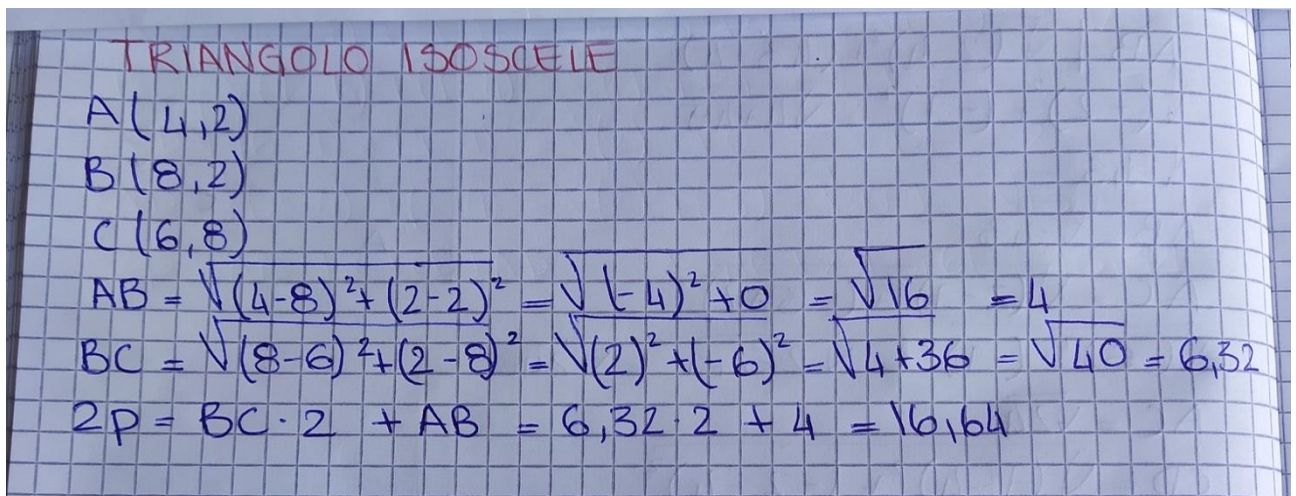 TRIANGOLO ISOSCELE
A(4,2)
B(8,2)
C(6,8)
AB = √(4-8)²+(2-2)² = √(-4)²+0 = √16 = 4
BC = √(8-6)²+(2-8)² = √(2)²+(-6)² = √4+36 = √40 = 6,32
2P = BC·2 + AB = 6,32·2 + 4 = 16,64